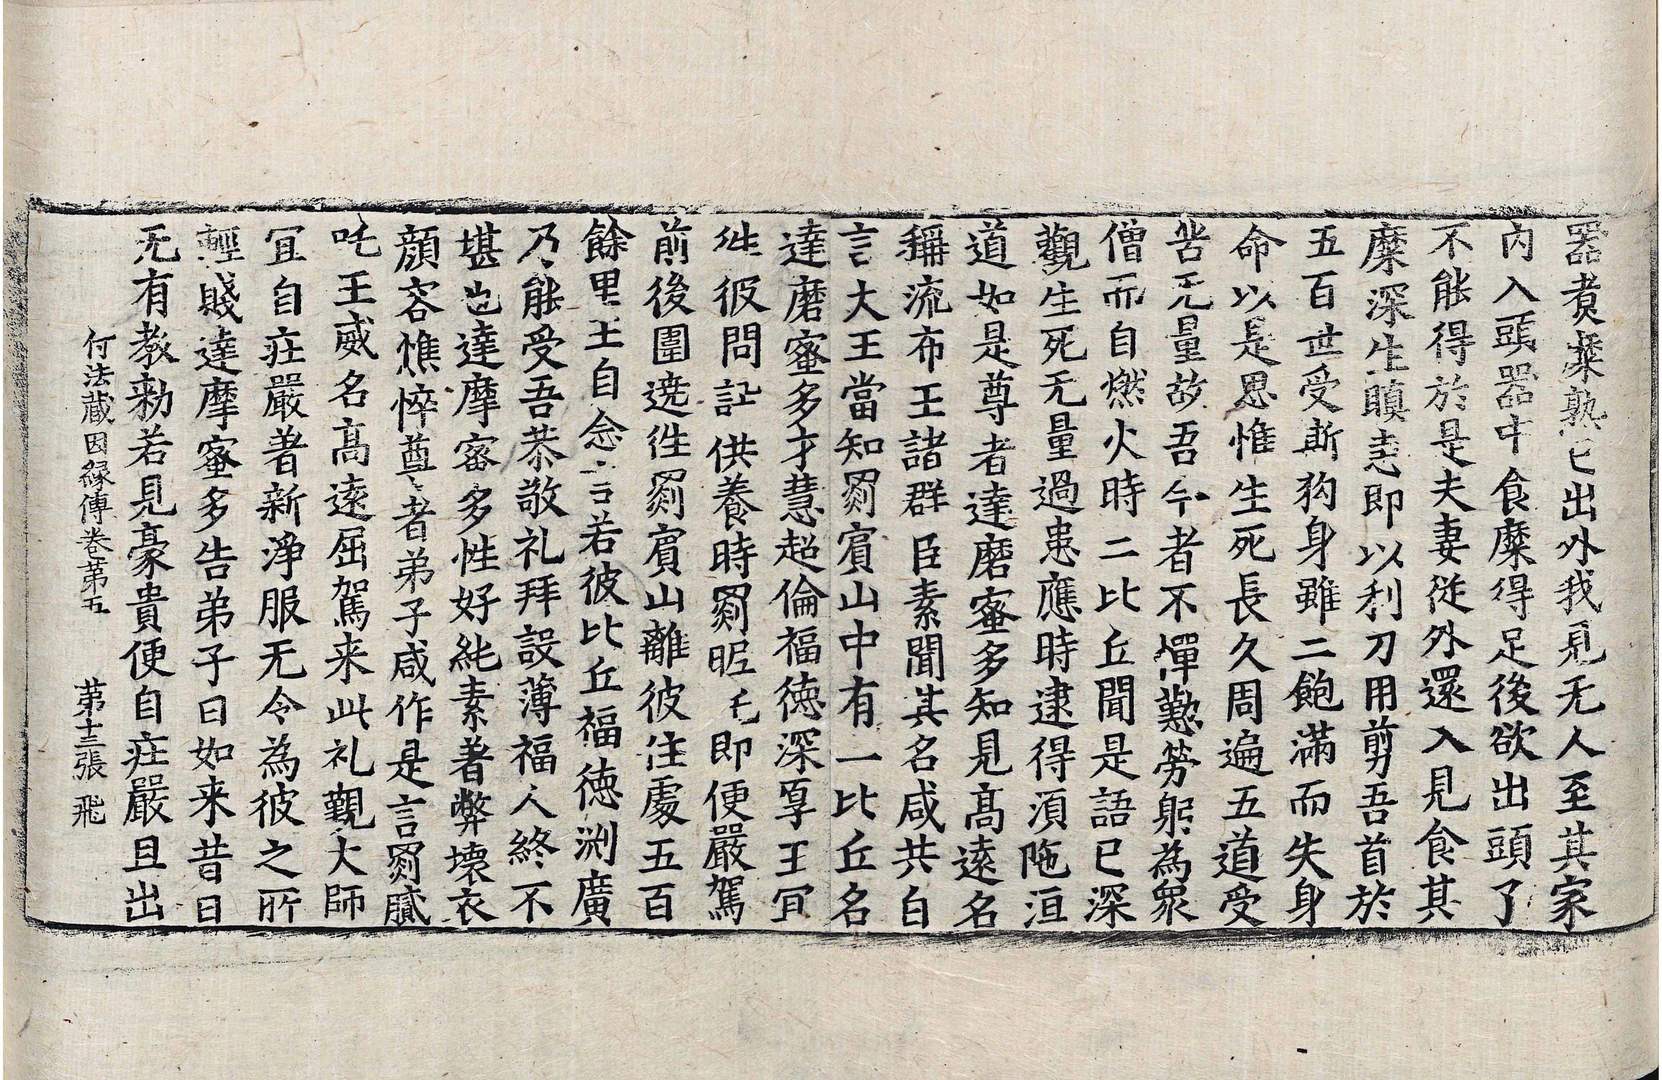 器煮糜熟已出外我見无人至其家
内入頭器中食糜得足後欲出頭了
不能得於是夫妻従外還入見食其
糜深生瞋恚即以利刀用剪吾首於
五百世受斯狗身雖二飽滿而失身
命以是思惟生死長久周遍五道受
苦无量故吾今者不憚懃勞躬為衆
僧而自燃火時二比丘聞是語已深
觀生死无量過患應時逮得湏陁洹
道如是尊者達磨蜜多知見髙遠名
稱流布王諸群臣素聞其名咸共白
言大王當知罽賓山中有一比丘名
達磨蜜多才慧超倫福徳深厚王冝
徃彼問訊供養時罽昵吒即便嚴駕
前後圍遶徃罽賓山離彼住處五百
餘里王自念言若彼比丘福徳渕廣
乃能受吾恭敬礼拜設薄福人終不
堪也達摩蜜多性好純素著弊壞衣
顔容憔悴尊者弟子咸作是言罽膩
吒王威名髙遠屈駕来此礼觐大師
冝自庄嚴著新淨服无令為彼之所
輕賤達摩蜜多告弟子曰如来昔日
无有教勑若見豪貴便自庄嚴且出
付法藏因縁傳卷第五　第十三張　飛